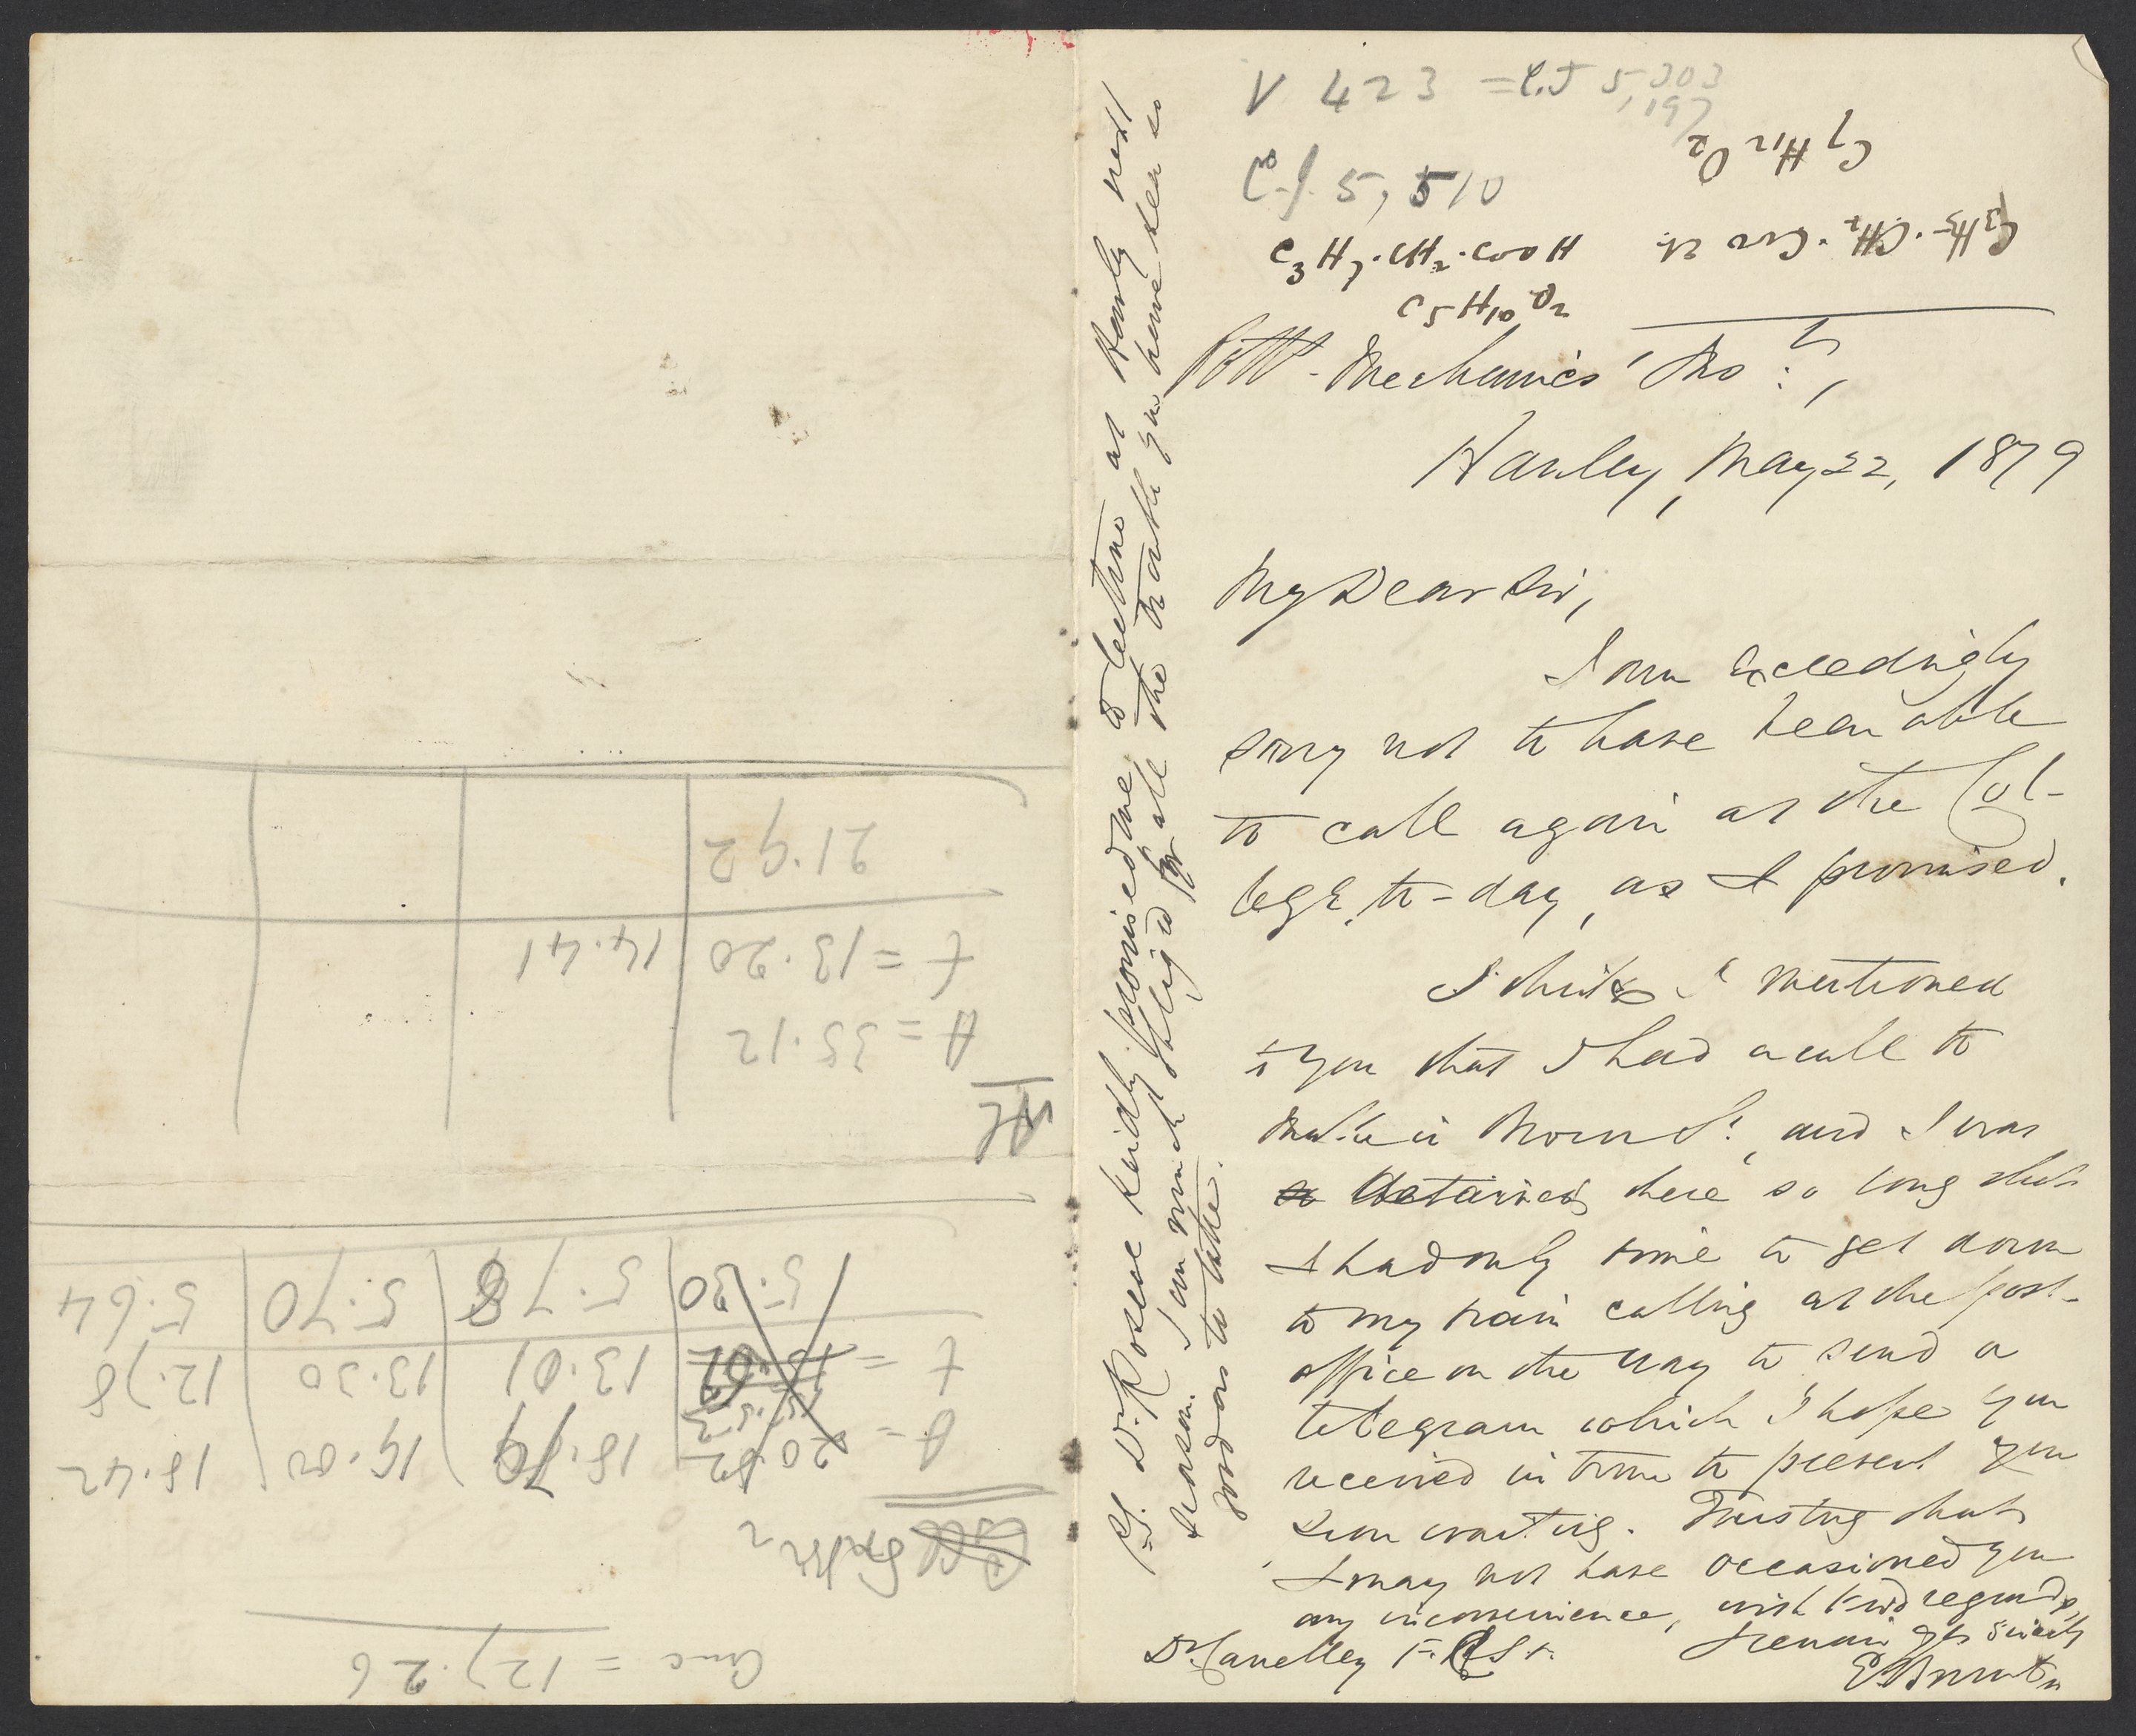 V 423 = C.J 5,303
,197
C7 H12 O2
C.J. 5,510
C3H7.CH2.COOH
C3H5.CH2.
C5H10O2
Mechanics'
Hanley, May 22, 1879
My Dear Sir,
I am exceedingly
sorry not to have been able
to call again at the Col-
lege, to-day, as I promised.
I think I mentioned
to you that I had a call to
make in and I was
detained there so long that
I had only time to get down
to my train calling at the post-
office on the way to send a
telegram which I hope you
received in time to prevent you
from waiting. Trusting that
I may not have occasioned you
any inconvenience, with kind regards,
I remain yrs sincerely
Dr. Carnelley
P.S. Dr. Roscoe kindly promised me to lecture at Hanley next
season. I am much obliged for all the trouble you have been so
good as to take.
= 127.26
A = 20.82 | 18.79 | 19.00 | 18.42
15.53
t = | 13.01 | 13.30 | 12.78
5.30 | 5.78 | 5.70 | 5.64
A = 35.12
t = 13.20 | 14.41
21.92